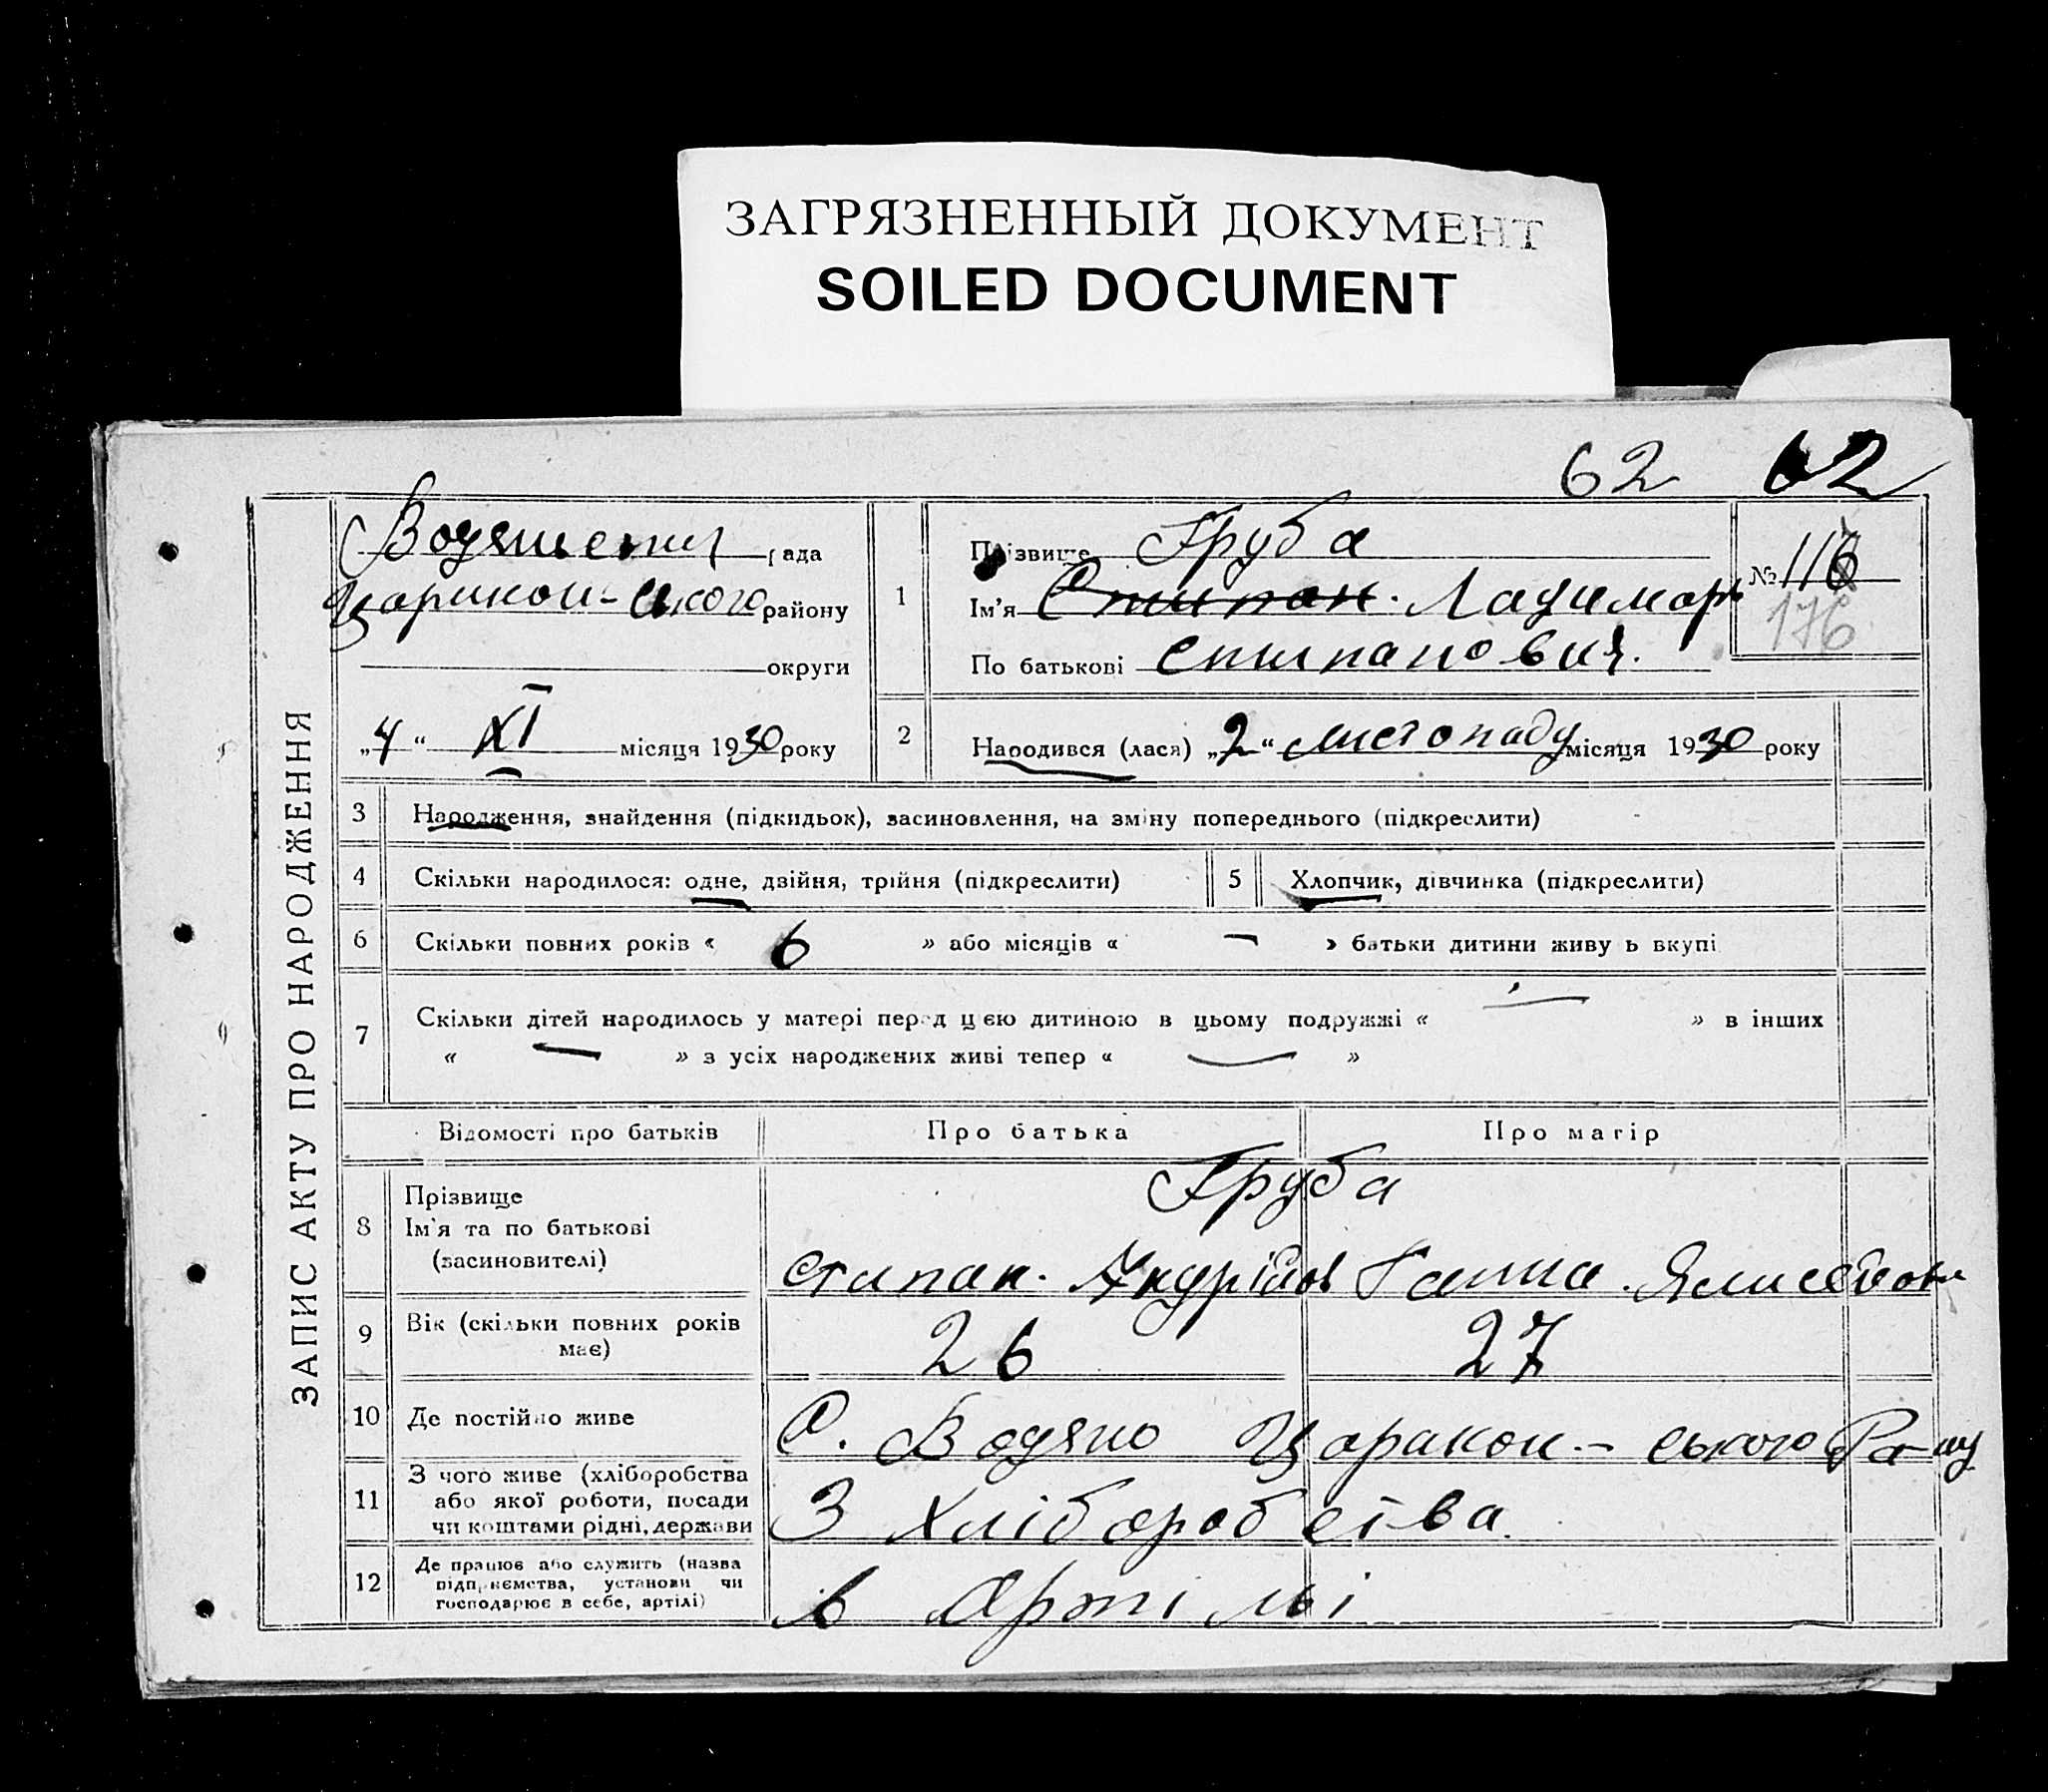 ЗАГРЯЗНЕННЫЙ ДОКУМЕНТ
SOILED DOCUMENT
62 62
ЗАПИС АКТУ ПРО НАРОДЖЕННЯ
рада
району
округи
„4“ XI місяця 1930 року
1
Прізвище Груба
Ім'я Стипан. Ладимар
По батькові Стипанович.
№ 116
176
2
Народився (лася) „2“ листопаду місяця 1930 року
3 Народження, знайдення (підкидьок), засиновлення, на зміну попереднього (підкреслити)
4 Скільки народилося: одне, двійня, трійня (підкреслити)
5 Хлопчик, дівчинка (підкреслити)
6 Скільки повних років « 6 » або місяців « — » батьки дитини живуть вкупі
7 Скільки дітей народилось у матері перед цією дитиною в цьому подружжі « — » в інших
« — » з усіх народжених живі тепер « — »
Відомості про батьків Про батька Про матір
8 Прізвище
Ім'я та по батькові
(засиновителі)
Груба
Стипан. Андрійов Ганна.
9 Вік (скільки повних років
має)
26 27
10 Де постійно живе
С. Водяно Царикон-ського Ра-ну
11 З чого живе (хліборобства
або якої роботи, посади
чи коштами рідні, держави
З Хліборобства.
12 Де працює або служить (назва
підприємства, установи чи
господарює в себе, артілі)
в Артільі